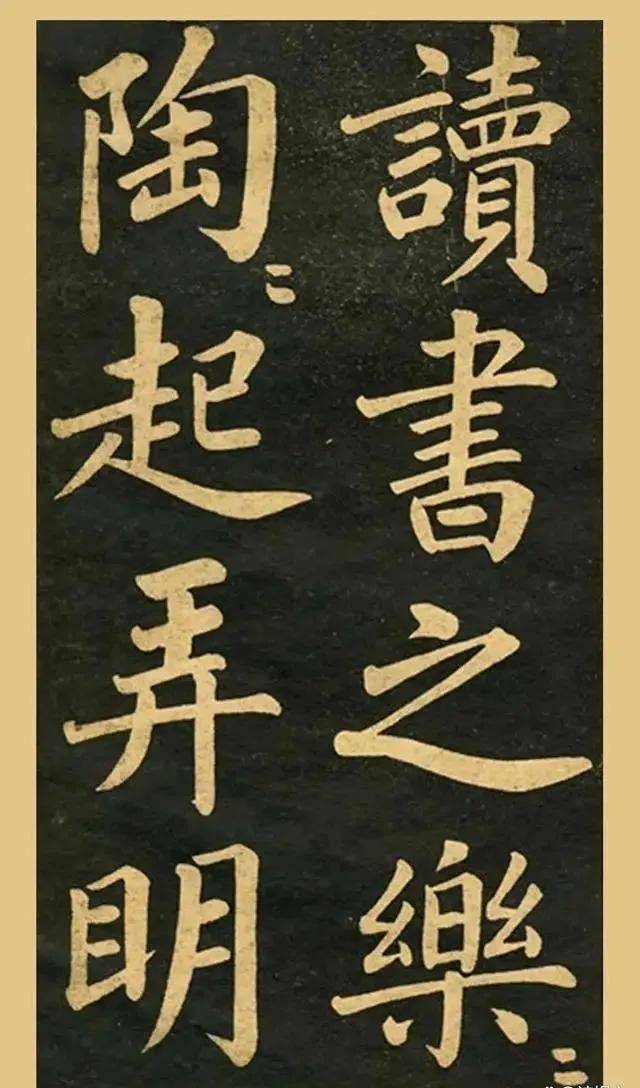 讀書之樂二
陶二起弄明